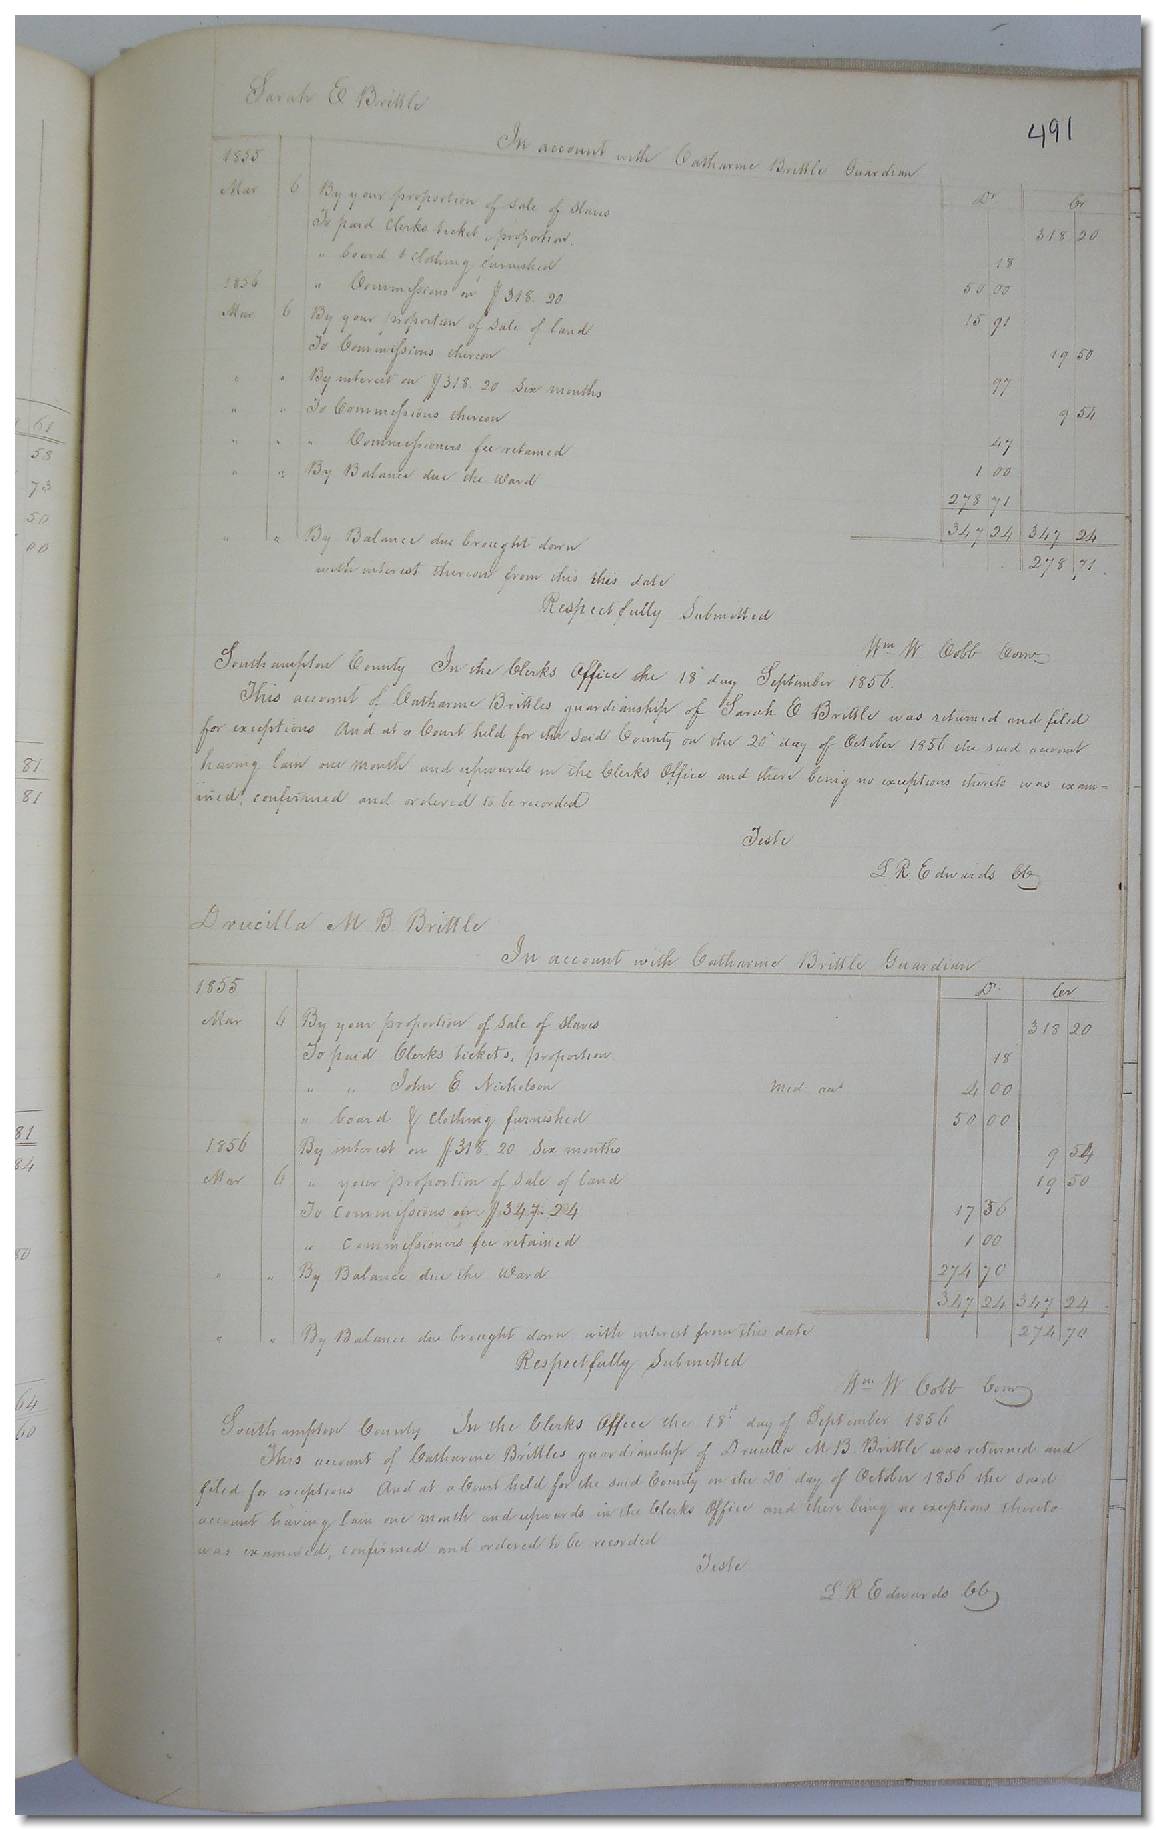 Sarah E Brittle
491
In account with Catharine Brittle Guardian
1855 Dr Cr
Mar 6 By your proportion of sale of slaves 318 20
To paid Clerks ticket, proportion. 18
" board & clothing furnished 50 00
1856 " Commissions on $318.20 15 91
Mar 6 By your proportion of sale of land 19 50
To Commissions thereon 97
" " By interest on $318.20 Six months 9 54
" " To Commissions thereon 47
" " " Commissioners fee retained 1 00
" " By Balance due the Ward 278 71
347 24 347 24
" " By Balance due brought down 278 71
with interest thereon from this this date
Respectfully Submitted
Wm W Cobb Comr
Southampton County In the Clerks Office the 18 day September 1856.
This account of Catharine Brittles guardianship of Sarah E Brittle was returned and filed
for exceptions And at a Court held for the said County on the 20 day of October 1856 the said account
having lain one month and upwards in the Clerks Office and there being no exceptions thereto was exam-
ined, confirmed and ordered to be recorded
Teste
L R Edwards CC
Drucilla M. B. Brittle
In account with Catharine Brittle Guardian
1855 Dr Cr
Mar 6 By your proportion of sale of slaves 318 20
To paid Clerks tickets, proportion 18
" " John E. Nickelson Med act 4 00
" board & clothing furnished 50 00
1856 By interest on $318.20 Six months 9 54
Mar 6 " your proportion of sale of land 19 50
To Commissions on $347.24 17 36
" Commissioners fee retained 1 00
" " By Balance due the Ward 274 70
347 24 347 24
" " By Balance due brought down with interest from this date 274 70
Respectfully Submitted
Wm W Cobb Comr
Southampton County In the Clerks Office the 18th day of September 1856
This account of Catharine Brittles guardianship of Drucilla M B. Brittle was returned and
filed for exceptions And at a Court held for the said County on the 20 day of October 1856 the said
account having lain one month and upwards in the Clerks Office and there being no exceptions thereto
was examined, confirmed and ordered to be recorded
Teste
L. R Edwards CC